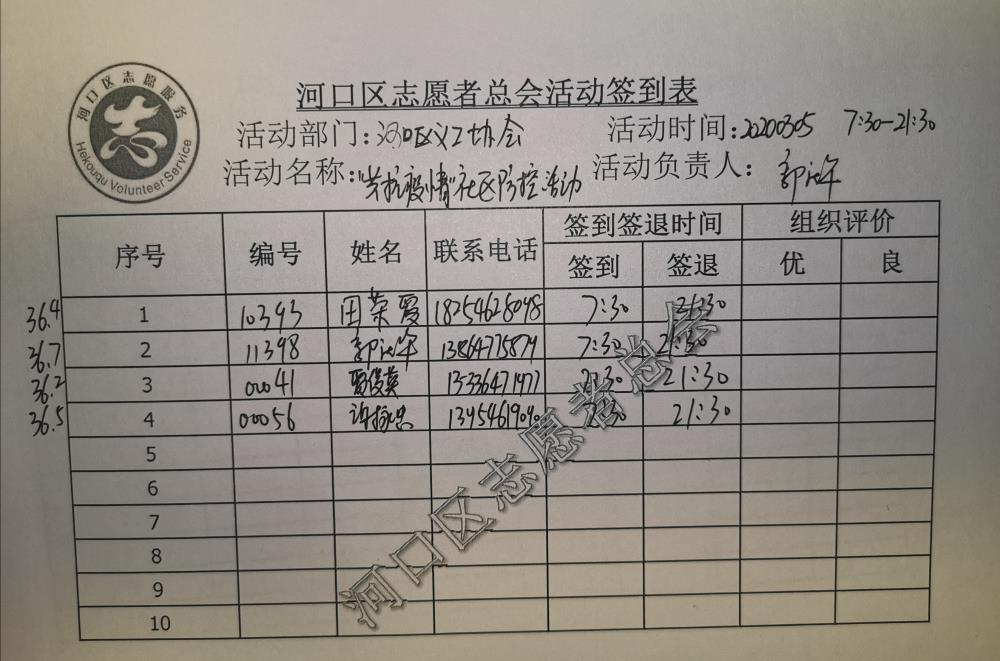 河口区志愿服务
Hekouqu Volunteer Service
河口区志愿者总会活动签到表
活动部门:河口区义工协会 活动时间:20200305 7:30-21:30
活动名称:"共抗疫情"社区防控活动 活动负责人:
序号 编号 姓名 联系电话 签到签退时间 组织评价
签到 签退 优 良
36.4 1 10393 田荣爱 18254628098 7:30 21:30
36.7 2 11398 13864775879 7:30 21:30
36.2 3 00041 贾俊英 13336471977 7:30 21:30
36.5 4 00056 许振忠 7:30 21:30
5
6
7
8
9
10
河口区志愿者总会